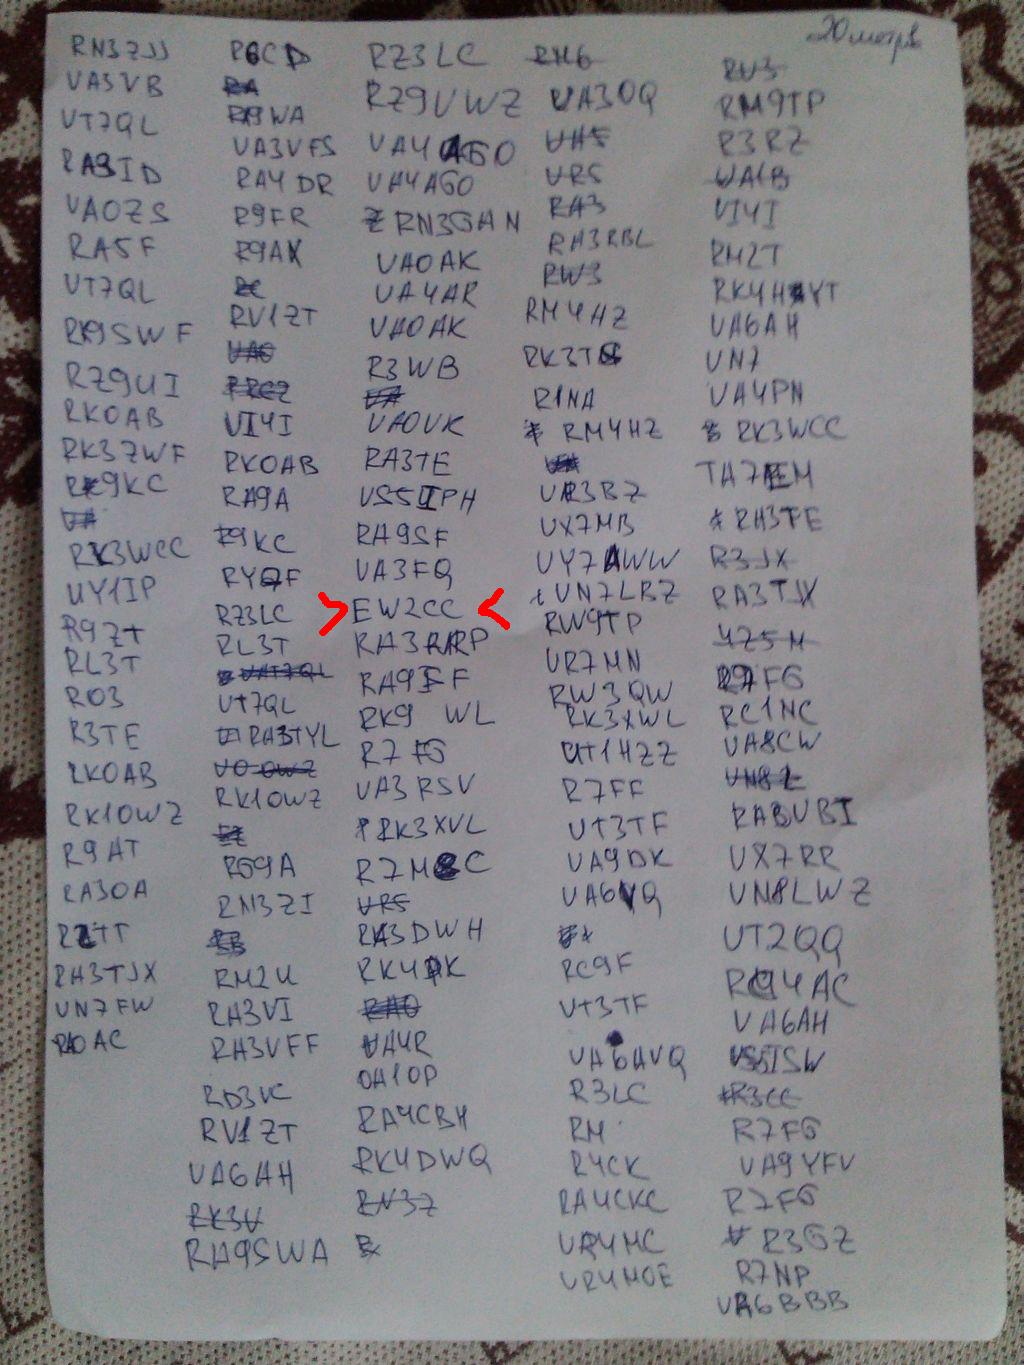 20 метров
RN3ZJJ
UA3VB
UT7QL
RA3ID
UA0ZS
RA5F
UT7QL
RK9SWF
RZ9UI
RK0AB
RK3ZWF
RK9KC
RK3WCC
UY1IP
R9ZT
RL3T
RO3
R3TE
RK0AB
RK1OWZ
R9AT
RA3OA
RA3TJX
UN7FW
RA0AC
R6CD
RA
RA9WA
UA3VFS
RA4DR
R9FR
R9AX
RV1ZT
UA0
UI4I
RK0AB
RA9A
R9KC
RZ3LC
RL3T
UT7QL
RA3TYL
RK1OWZ
RG9A
RN3ZI
RM2U
RA3VI
RA3VFF
RD3VC
RV1ZT
UA6AH
RK3V
RA9SWA
RZ3LC
RZ9UWZ
UA4AGO
UA4AGO
RN3GAN
UA0AK
UA4AR
UA0AK
R3WB
UA0UK
RA3TE
US5IPH
RA9SF
UA3FQ
EW2CC
RA3RRP
RA9FF
RK9 WL
R7FG
UA3RSV
RK3XVL
R7MC
UR5
RK3DWH
RK4PK
RA0
UA4R
OA1OP
RA4CBH
RK4DWQ
RN3Z
RN6
UA3OQ
UA5
UR5
RA3
RA3RBL
RW3
RM4HZ
RK3TG
R1NA
RM4HZ
UR3BZ
UX7MB
UY7AWW
UN7LBZ
RW9TP
UR7MN
RW3QW
RK3XWL
UT1HZZ
R7FF
UT3TF
UA9DK
UA6YQ
RC9F
UT3TF
UA6AVQ
R3LC
RM
R4CK
RA4CKC
UA4HC
UR4MOE
RU3
RM9TP
R3RZ
UA1B
UI4I
RM2T
RK4HYT
UA6AH
UN7
UA4PN
RK3WCC
TA7EM
RA3TE
R3JX
RA3TJX
R7FG
RC1NC
UA8CW
UN8L
RA3UBI
UX7RR
UN8LWZ
UT2QQ
RQ4AC
UA6AH
US5ISW
R3CC
R7FG
UA9YFV
R7FG
R3GZ
R7NP
UA6BBB